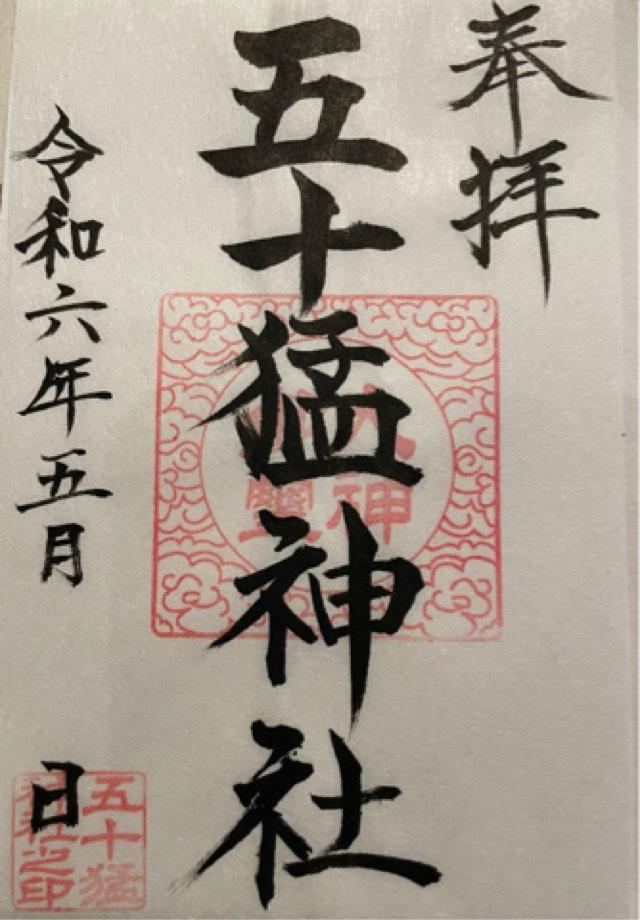 奉拝
五十猛神社
令和六年五月 日
五十猛
神社之印